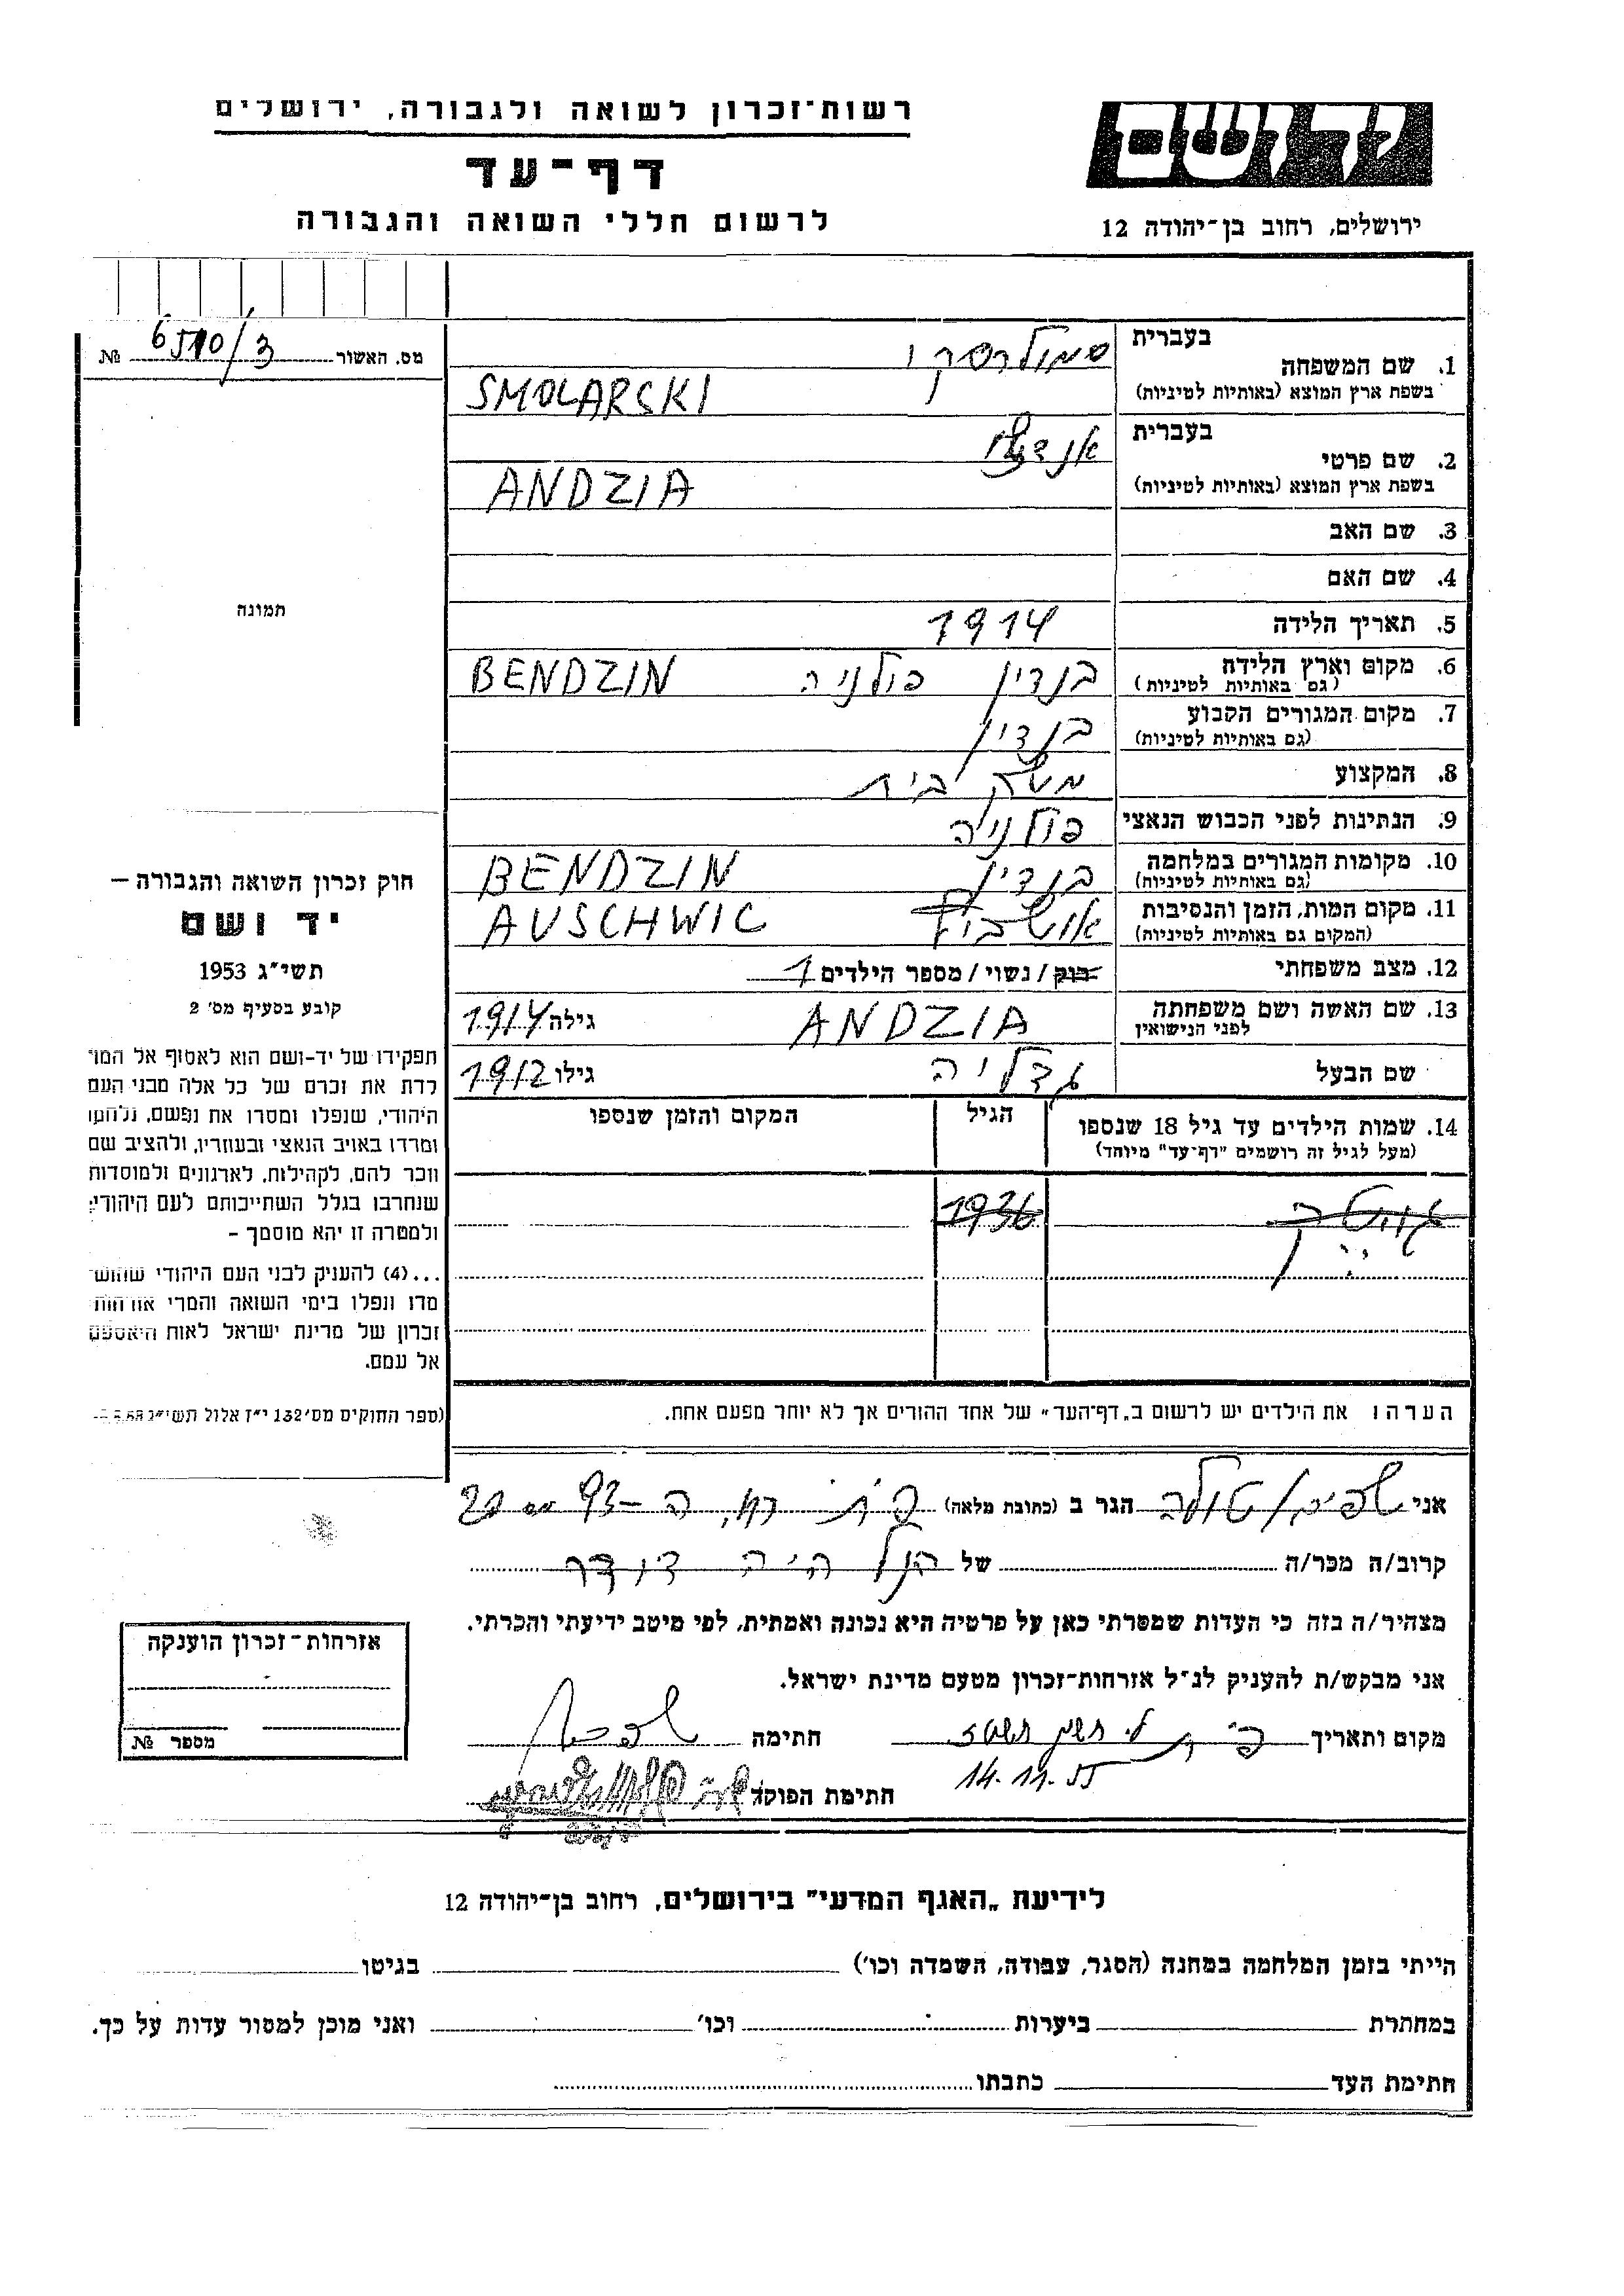 רשות־זכרון לשואה ולגבורה, ירושלים
דף־עד
לרשום חללי השואה והגבורה
יד ושם
ירושלים, רחוב בן־יהודה 12
מס. האשור 6510/3 №
תמונה
בעברית סמולרסקי
1. שם המשפחה
בשפת ארץ המוצא (באותיות לטיניות) SMOLARSKI
בעברית
2. שם פרטי
בשפת ארץ המוצא (באותיות לטיניות) ANDZIA
3. שם האב
4. שם האם
5. תאריך הלידה 1914
6. מקום וארץ הלידה בנדין פולניה BENDZIN
(גם באותיות לטיניות)
7. מקום המגורים הקבוע בנדין
(גם באותיות לטיניות)
8. המקצוע משק בית
9. הנתינות לפני הכבוש הנאצי פולניה
10. מקומות המגורים במלחמה בנדין BENDZIN
(גם באותיות לטיניות)
11. מקום המות, הזמן והנסיבות אושביץ AUSCHWIC
(המקום גם באותיות לטיניות)
12. מצב משפחתי רוק/נשוי/מספר הילדים 1
13. שם האשה ושם משפחתה ANDZIA גילה 1914
לפני הנישואין
שם הבעל גדליה גילו 1912
14. שמות הילדים עד גיל 18 שנספו הגיל המקום והזמן שנספו
(מעל לגיל זה רושמים "דף־עד" מיוחד)
1936
הערה: את הילדים יש לרשום ב„דף־העד" של אחד ההורים אך לא יותר מפעם אחת.
חוק זכרון השואה והגבורה —
יד ושם
תשי״ג 1953
קובע בסעיף מס׳ 2
תפקידו של יד-ושם הוא לאסוף אל המו
לדת את זכרם של כל אלה מבני העם
היהודי, שנפלו ומסרו את נפשם, נלחמו
ומרדו באויב הנאצי ובעוזריו, ולהציב שם
וזכר להם, לקהילות, לארגונים ולמוסדות
שנחרבו בגלל השתייכותם לעם היהודי;
ולמטרה זו יהא מוסמך –
...(4) להעניק לבני העם היהודי שהוש־
מדו ונפלו בימי השואה והמרי אזרחות
זכרון של מדינת ישראל לאות היאספם
אל עמם.
(ספר החוקים מס׳ 132 י״ז אלול תשי״ג
אני הגר ב (כתובת מלאה)
קרוב/ה מכר/ה של הנ״ל היה דודר
מצהיר/ה בזה כי העדות שמסרתי כאן על פרטיה היא נכונה ואמתית, לפי מיטב ידיעתי והכרתי.
אני מבקש/ת להעניק לנ״ל אזרחות־זכרון מטעם מדינת ישראל.
מקום ותאריך חתימה
14.11.55
חתימת הפוקד
אזרחות־זכרון הוענקה
מספר №
לידיעת „האגף המדעי" בירושלים, רחוב בן־יהודה 12
הייתי בזמן המלחמה במחנה (הסגר, עבודה, השמדה וכו׳) בגיטו
במחתרת ביערות וכו׳ ואני מוכן למסור עדות על כך.
חתימת העד כתבתו